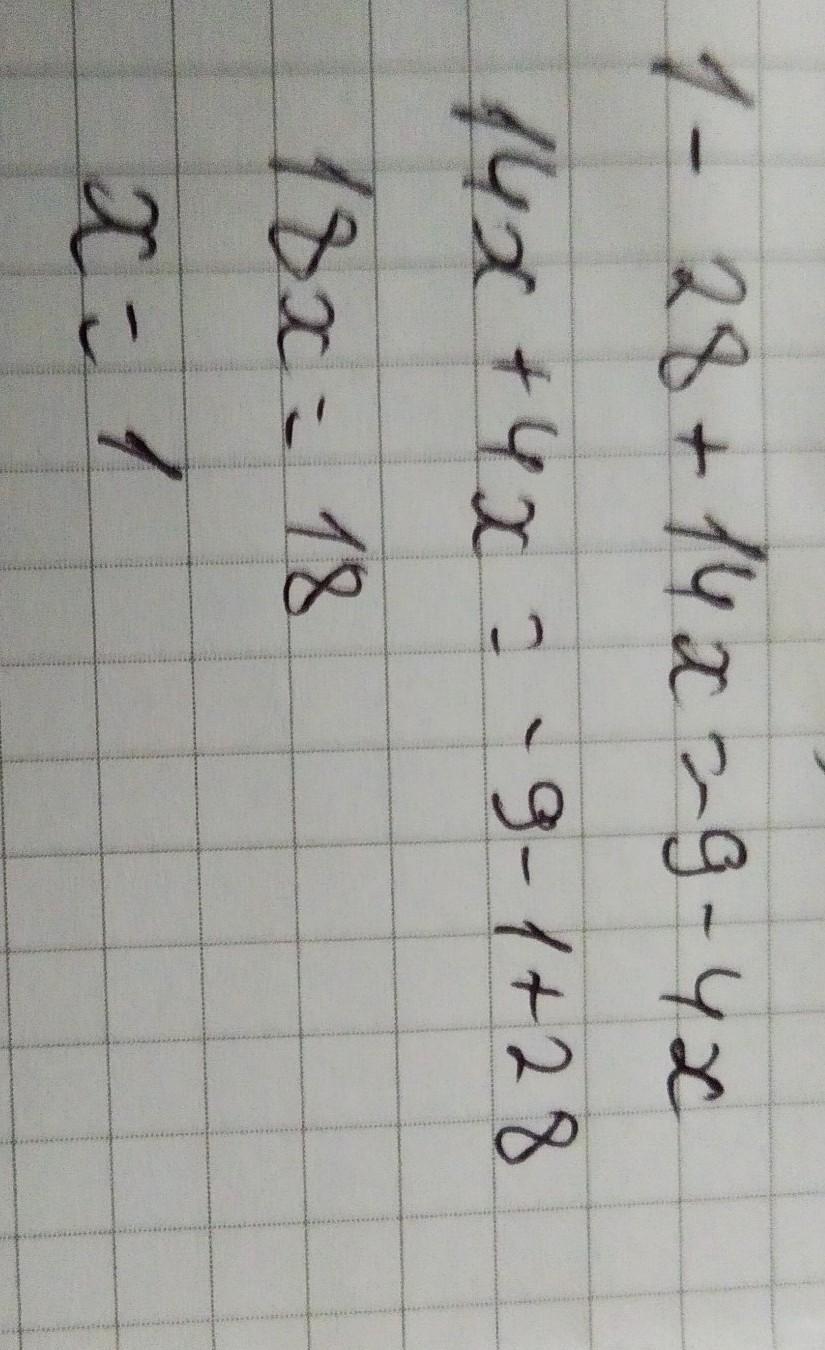 1 - 28 + 14x = -9 - 4x
14x + 4x = -9 - 1 + 28
18x = 18
x = 1